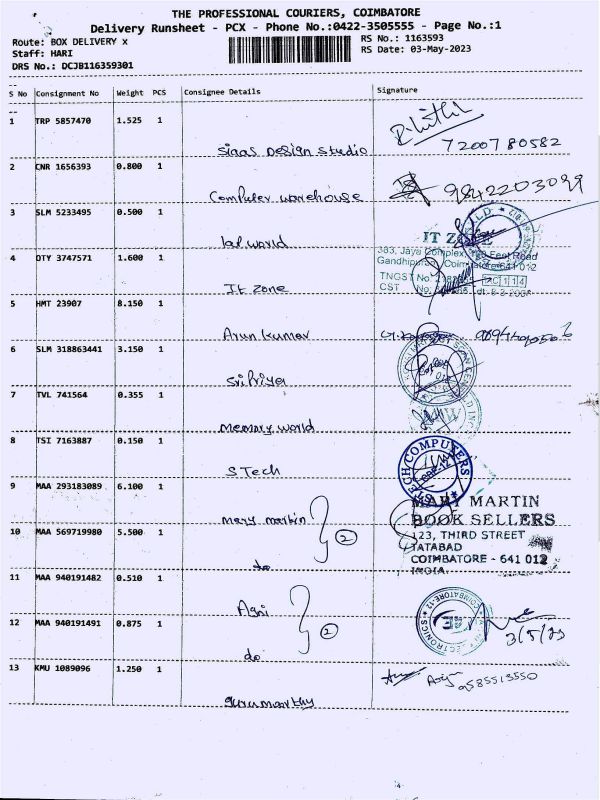 THE PROFESSIONAL COURIERS, COIMBATORE
Delivery Runsheet - PCX - Phone No.:0422-3505555 - Page No.:1
Route: BOX DELIVERY x
Staff: HARI
DRS No.: DCJB116359301
RS No.: 1163593
RS Date: 03-May-2023
S No Consignment No Weight PCS Consignee Details Signature
1 TRP 5857470 1.525 1
Siaas Design Studio 7200780582
2 CNR 1656393 0.800 1
Computer warehouse 9842203099
3 SLM 5233495 0.500 1
world
IT ZONE
383, Jaya Complex, Feet Road
4 OTY 3747571 1.600 1
Gandhipuram, Coimbatore-641 012
TNGST No
CST No.
IT Zone
5 HMT 23907 8.150 1
Arun kumar
6 SLM 318863441 3.150 1
Sri Priya
7 TVL 741564 0.355 1
Memory world
8 TSI 7163887 0.150 1
STech
TECH COMPUTERS
9 MAA 293183089 6.100 1
MARY MARTIN
mary martin
BOOK SELLERS
10 MAA 569719980 5.500 1
2
123, THIRD STREET
TATABAD
COIMBATORE - 641 012
do
INDIA
11 MAA 940191482 0.510 1
Agni
12 MAA 940191491 0.875 1
2
ELECTRONICS
COIMBATORE-12
3/5/23
do
13 KMU 1089096 1.250 1
9585513550
gurumoorthy